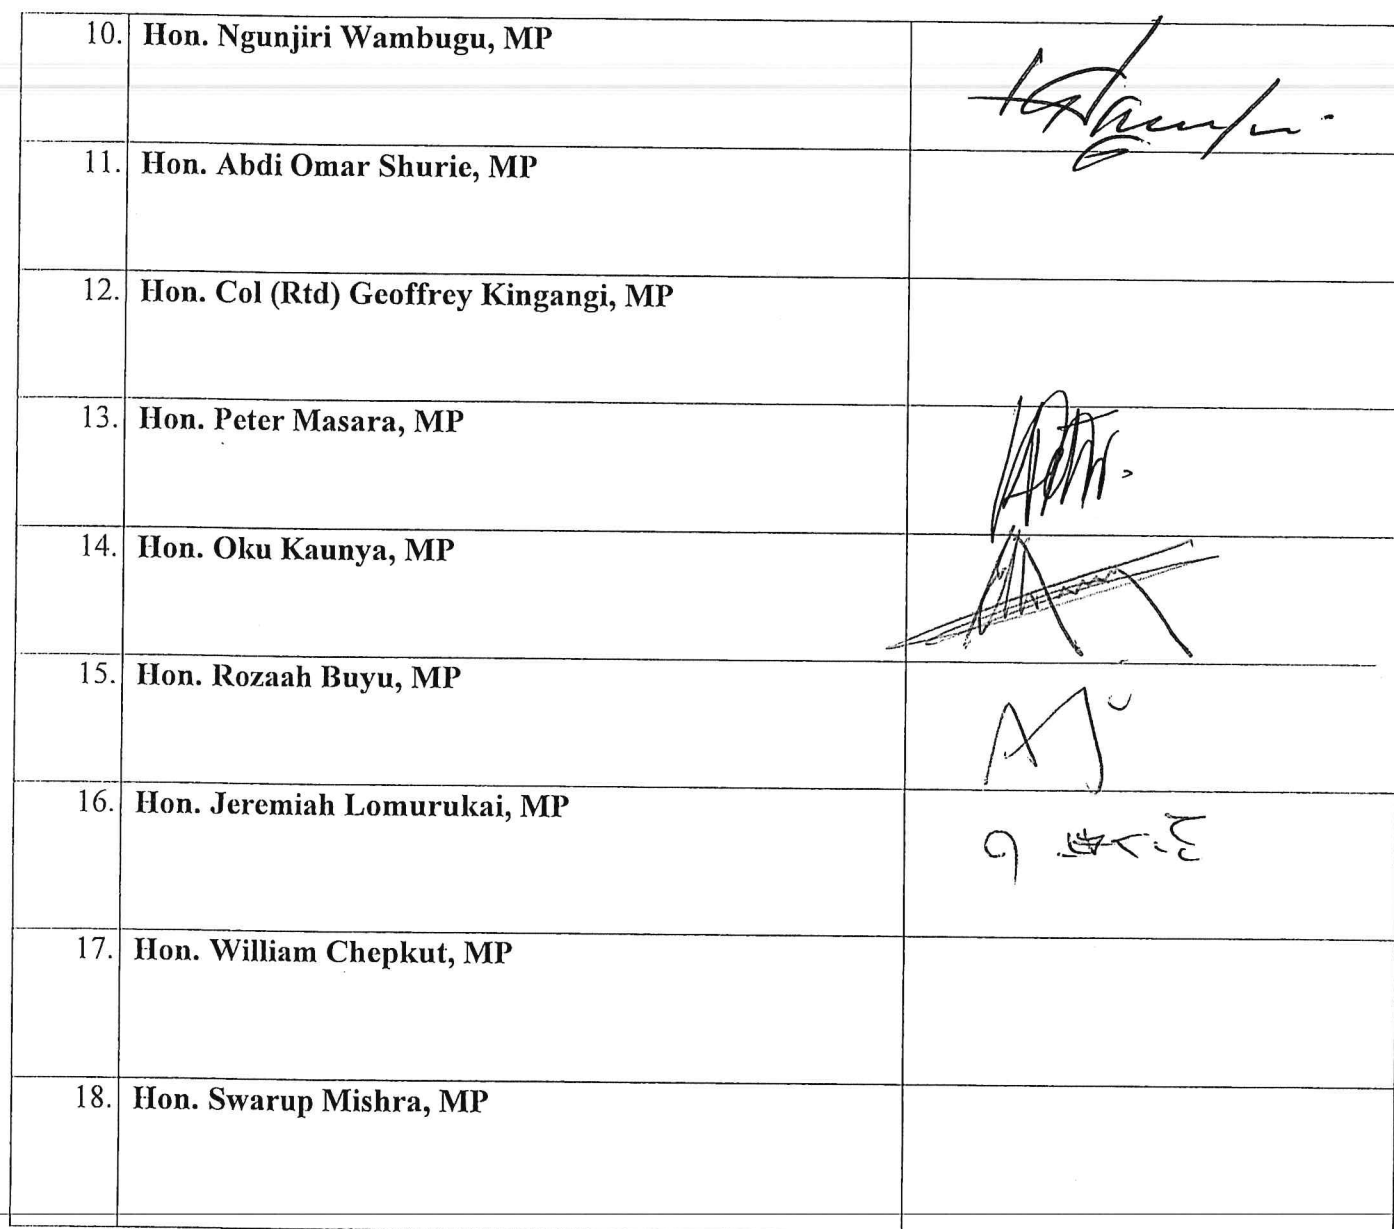 10. Hon. Ngunjiri Wambugu, MP
11. Hon. Abdi Omar Shurie, MP
12. Hon. Col (Rtd) Geoffrey Kingangi, MP
13. Hon. Peter Masara, MP
14. Hon. Oku Kaunya, MP
15. Hon. Rozaah Buyu, MP
16. Hon. Jeremiah Lomurukai, MP
17. Hon. William Chepkut, MP
18. Hon. Swarup Mishra, MP